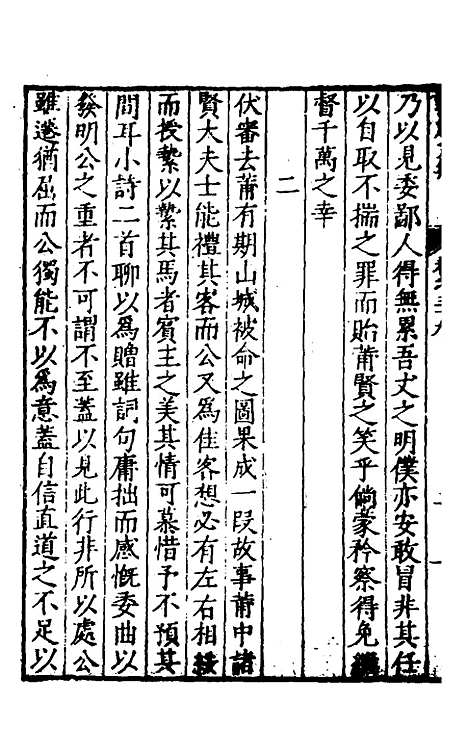 乃以見委鄙人得無累吾丈之明僕亦安敢冒非其任
以自取不揣之罪而貽莆賢之笑乎倘蒙矜察得免
督千萬之幸
二
伏審去莆有期山城被命之圖果成一段故事莆中諸
賢大夫士能禮其客而公又為佳客想必有左右相
而授縶以縶其馬者賓主之美其情可慕惜予不預其
間耳小詩二首聊以爲贈雖詞句庸拙而感慨委曲以
發明公之重者不可謂不至蓋以見此行非所以處公
雖遷猶屈而公獨能不以爲意蓋自信直道之不足以